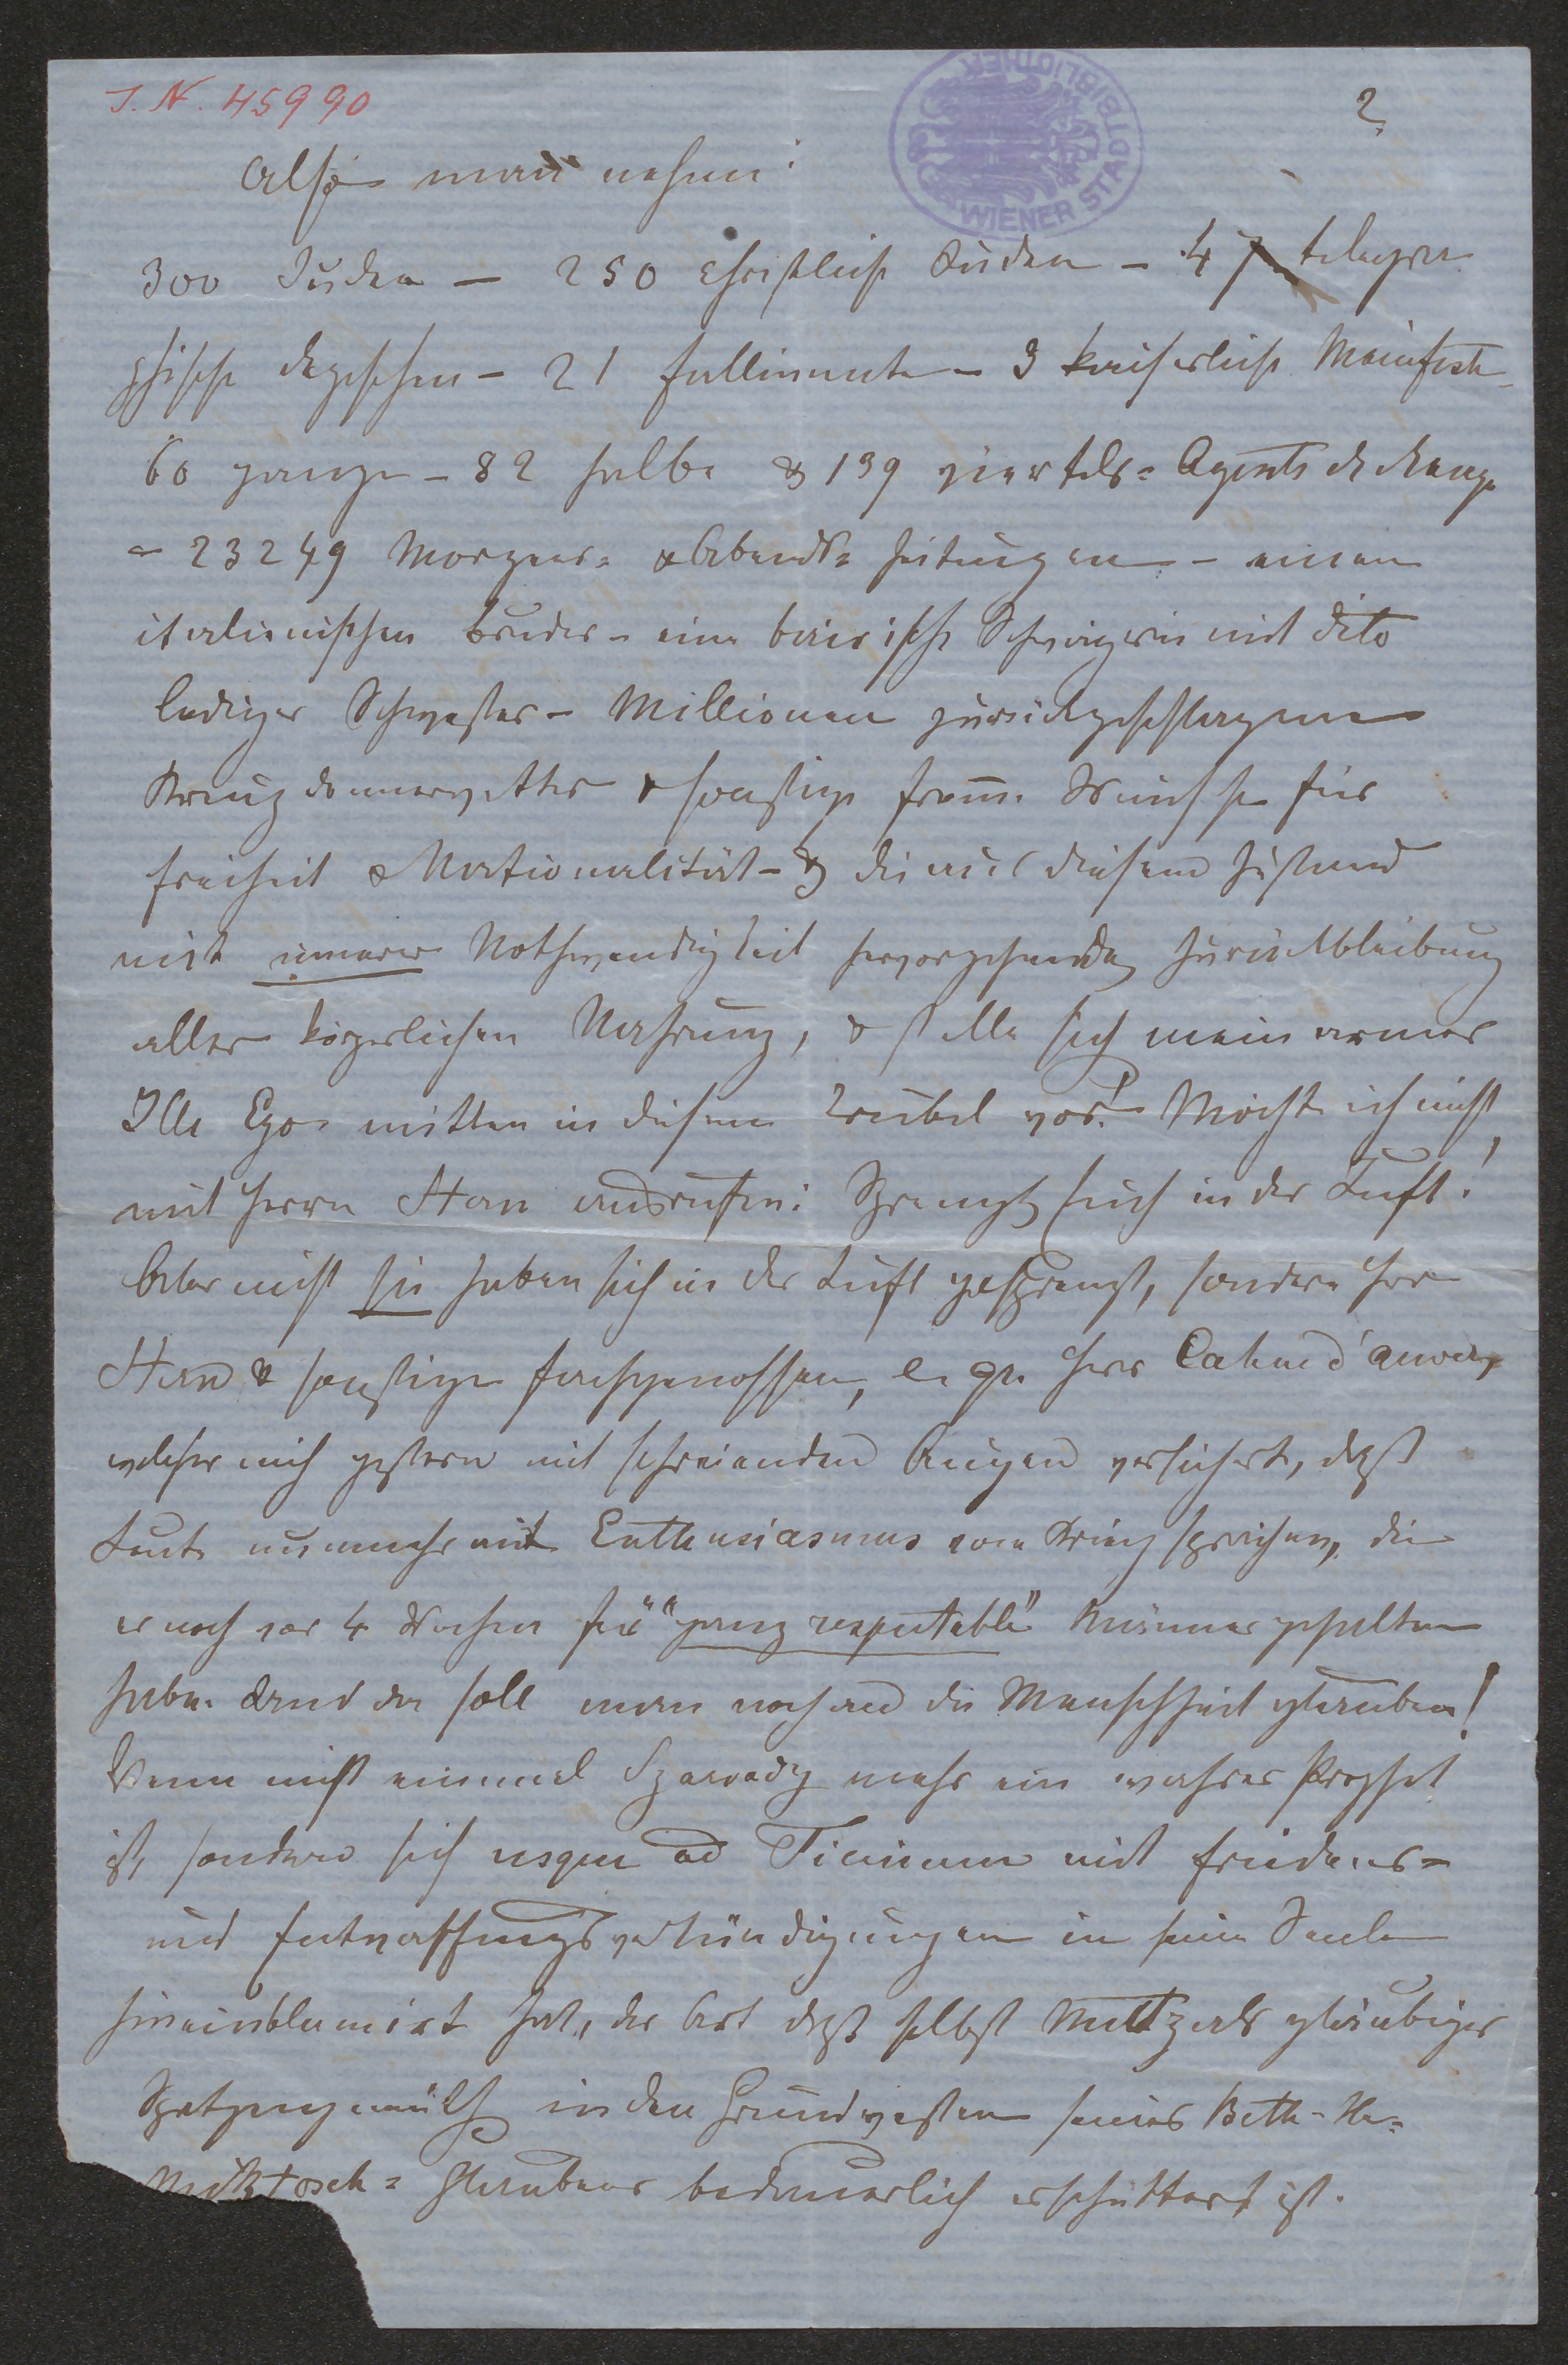 J. N. 45990
2
WIENER STADTBIBLIOTHEK
Also man nehme:
300 Juden — 250 christliche Juden — 47 telegra-
phische Depeschen — 21 Fallimente — 3 kaiserliche Manifeste —
60 ganze — 82 halbe & 139 viertels= Agents de change
— 23249 Morgen= & Abend= Zeitungen — einen
italienischen Bruder — eine bairische Schwägerin mit dito
lediger Schwester — Millionen zurückgeschlagene
Kreuzdonnerwetter & sonstige from̄e Wünsche für
Freiheit & Nationalität — & die aus diesem Zustand
mit innerer Nothwendigkeit hervorgehende Zurückbleibung
aller körperlichen Nahrung, & stelle sich mein armes
Ille Ego mitten in diesem Trubel vor! Möcht ich nicht,
mit Herrn Stern ausrufen: Sprengt sich in der Luft!
Aber nicht sie haben sich in der Luft gesprengt, sondern Herr
Stern & sonstige Fachgenossen, e. gr. Herr Cahen d'Anvers,
welcher mich gestern mit schreienden Augen versicherte, daß
Leute nunmehr mit Enthusiasmus vom Krieg sprechen, die
er noch vor 4 Wochen für "ganz respectable" Männer gehalten
habe. Und da soll man noch an die Menschheit glauben!
Wenn nicht einmal Szarvady mehr ein wahrer Prophet
ist, sondern sich usque ad Ticinum mit Friedens=
und Entwaffnungsverkündigungen in seine Seele
hineinblamirt hat, der Art daß selbst als gläubiger
in den Grundvesten seines Beth-Ha=
Mikdosch= Glaubens bedauerlich erschüttert ist.